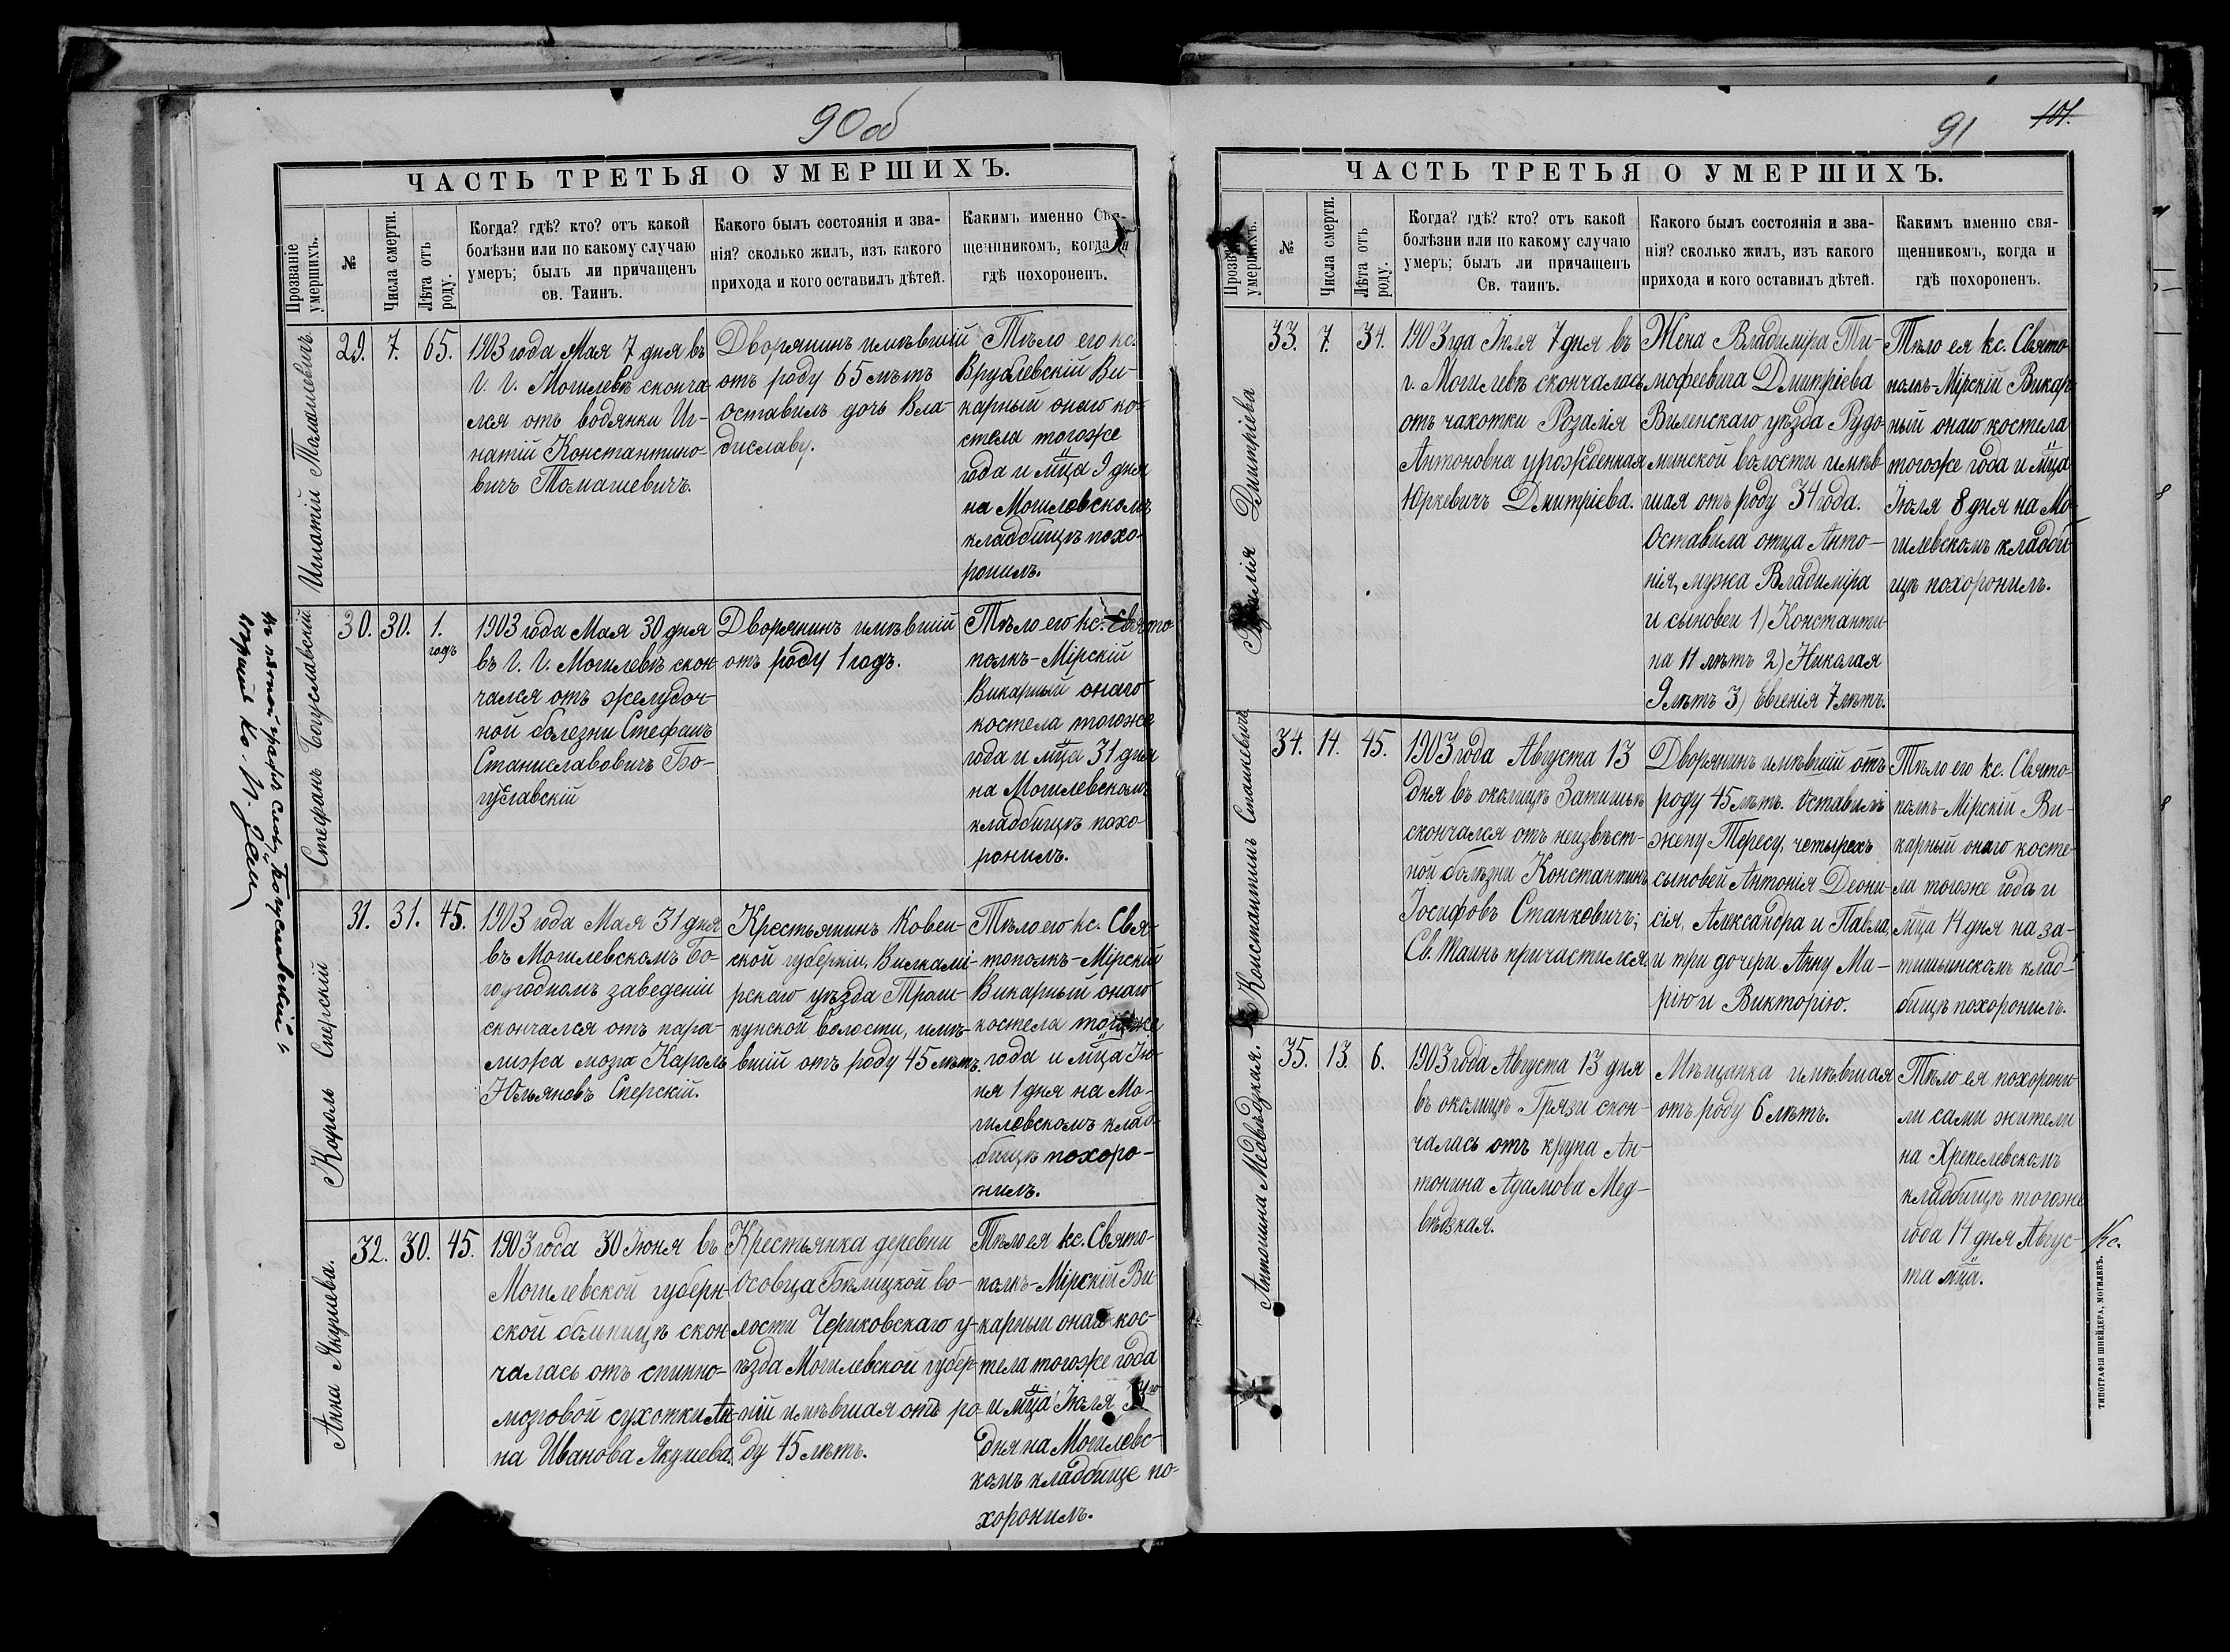 90 об
ЧАСТЬ ТРЕТЬЯ О УМЕРШИХЪ.
Прозваніе
умершихъ.
№
Числа смерти.
Лѣта отъ
роду.
Когда? гдѣ? кто? отъ какой
болѣзни или по какому случаю
умеръ; былъ ли причащенъ
св. Таинъ.
Какого былъ состоянія и зва-
нія? сколько жилъ, изъ какого
прихода и кого оставилъ дѣтей.
Какимъ именно Свя-
щенникомъ, когда и
гдѣ похороненъ.
Игнатій Томашевичъ
29.
7.
65.
1903 года Мая 7 дня въ
Г. Г. Могилевѣ сконча-
лся отъ водянки Иг-
натій Константино-
вичъ Томашевичъ.
Дворянинъ имѣвшій
отъ роду 65 лѣтъ
оставилъ дочь Вла-
диславу.
Тѣло его кс.
Врублевскій Ви-
карный онаго ко-
стела тогоже
года и мца 9 дня
на Могилевскомъ
кладбищѣ похо-
ронилъ.
Стефанъ Богуславскій
30.
30.
1.
годъ
1903 года Мая 30 дня
въ Г. Г. Могилевѣ скон-
чался отъ желудоч-
ной болезни Стефанъ
Станиславовичъ Бо-
гуславскій
Дворянинъ имѣвшій
отъ роду 1 годъ.
Тѣло его кс. Свято
полкъ-Мірскій
Викарный онаго
костела тогоже
года и мца 31 дня
на Могилевскомъ
кладбищѣ похо-
ронилъ.
Кароль Сперскій
31.
31.
45.
1903 года Мая 31 дня
въ Могилевскомъ Бо-
гоугодномъ заведеніи
скончался отъ пара-
лижа мозга Кароль
Юльяновъ Сперскій.
Крестьянинъ Ковен-
ской губерніи, Вилками-
рскаго уѣзда Траш-
кунской волости, имѣ-
вшій отъ роду 45 лѣтъ.
Тѣло его кс. Свя-
тополкъ-Мірскій
Викарный онаго
костела тогоже
года и мца Ію-
ня 1 дня на Мо-
гилевскомъ клад-
бищѣ похоро-
нилъ.
Анна Якушева.
32.
30.
45.
1903 года 30 Іюня въ
Могилевской губерн-
ской больницѣ скон-
чалась отъ спинно-
мозговой сухотки Ан-
на Иванова Якушева.
Крестьянка деревни
Осовца Бѣлицкой во-
лости Чериковскаго у-
ѣзда Могилевской губер-
ніи имѣвшая отъ ро-
ду 45 лѣтъ.
Тѣло ея кс. Свято-
полкъ-Мірскій Ви
карный онаго кос-
тела тогоже года
и мца Іюля
дня на Могилевс-
комъ кладбище по-
хоронилъ.
91
101.
ЧАСТЬ ТРЕТЬЯ О УМЕРШИХЪ.
умершихъ.
№
Числа смерти.
Лѣта отъ
роду.
Когда? гдѣ? кто? отъ какой
болѣзни или по какому случаю
умеръ; былъ ли причащенъ
Св. таинъ.
Какого былъ состоянія и зва-
нія? сколько жилъ, изъ какого
прихода и кого оставилъ дѣтей.
Какимъ именно свя-
щенникомъ, когда и
гдѣ похороненъ.
Розалія Дмитріева
33.
7.
34.
1903 года Іюля 7 дня въ
г. Могилевѣ скончалась
отъ чахотки Розалія
Антоновна урожденная
Юркевичъ Дмитріева.
Жена Владиміра Ти-
мофеевича Дмитріева
Виленскаго уѣзда Рудо-
минской волости имѣв-
шая отъ роду 34 года.
Оставила отца Анто-
нія, мужа Владиміра
и сыновей 1) Константи-
на 11 лѣтъ 2) Николая
9 лѣтъ 3) Евгенія 7 лѣтъ.
Тѣло ея кс. Свято
полкъ-Мірскій Викар-
ный онаго костела
тогоже года и мца
Іюля 8 дня на Мо-
гилевскомъ кладби-
щѣ похоронилъ.
Константинъ Станкевичъ
34.
14.
45.
1903 года Августа 13
дня въ околицѣ Затишьѣ
скончался отъ неизвѣст-
ной болѣзни Константинъ
Іосифовъ Станкевичъ;
Св. Таинъ причастился.
Дворянинъ имѣвшій отъ
роду 45 лѣтъ. Оставилъ
жену Тересу, четырехъ
сыновей Антонія Деони-
сія, Александра и Павла,
и три дочери Анну Ма-
рію и Викторію.
Тѣло его кс. Свято-
полкъ-Мірскій Ви-
карный онаго косте-
ла тогоже года и
мца 14 дня на за-
тишьинскомъ клад-
бищѣ похоронилъ.
Антонина Медвѣдзкая.
35.
13.
6.
1903 года Августа 13 дня
въ околицѣ Грязи скон-
чалась отъ крупа Ан-
тонина Адамова Мед-
вѣдзкая.
Мѣщанка имѣвшая
отъ роду 6 лѣтъ.
Тѣло ея похорони
ли сами жители
на Хрепелевскомъ
кладбищѣ тогоже
года 14 дня Авгус-
та мца.
Кс.
ТИПОГРАФІЯ ШНЕЙДЕРА, МОГИЛЕВЪ.